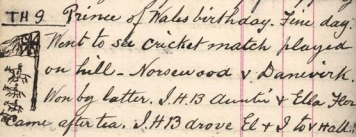 TH 9 Prince of Wales birthday. Fine day.
Went to see cricket match played
on hill - Norsewood v. Danevirk.
Won by latter. J.H.B Auntie & Ella Flor
came after tea. J.H.B drove El & J to v Hall.